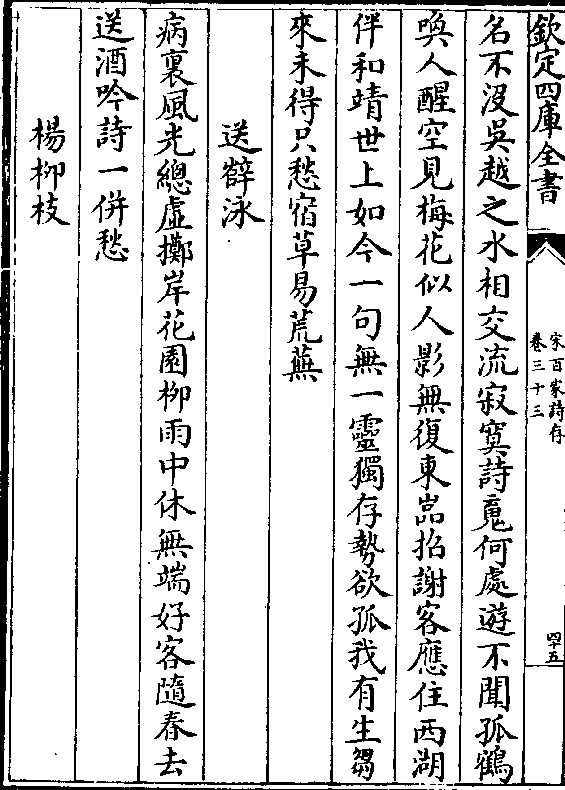 欽定四庫全書
宋百家詩存
卷三十三
四十五
名不沒吳越之水相交流寂寞詩䰟何處遊不聞孤鶴
喚人醒空見梅花似人影無復東嵓招謝客應住西湖
伴和靖世上如今一句無一靈獨存勢欲孤我有生芻
來未得只愁宿草易荒蕪
送薛泳
病裏風光總虛擲岸花園柳雨中休無端好客隨春去
送酒吟詩一併愁
楊柳枝